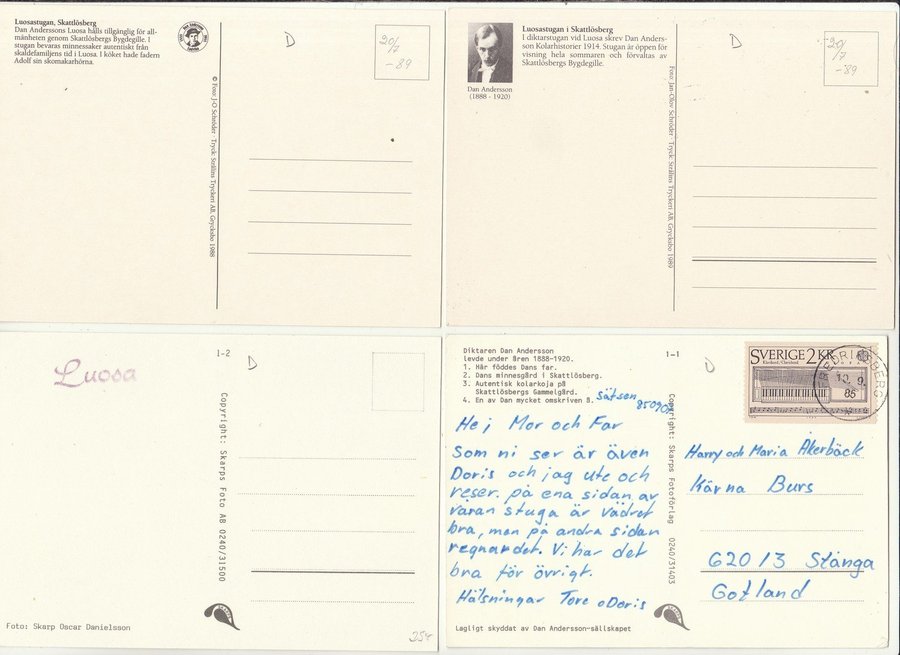 Luosastugan, Skattlösberg
Dan Anderssons Luosa hålls tillgänglig för all-
mänheten genom Skattlösbergs Bygdegille. I
stugan bevaras minnessaker autentiskt från
skaldefamiljens tid i Luosa. I köket hade fadern
Adolf sin skomakarhörna.
D
20/7
-89
© Foto: J-O Schröder · Tryck: Strålins Tryckeri AB, Grycksbo 1988
Dan Andersson
(1888 - 1920)
Luosastugan i Skattlösberg
I diktarstugan vid Luosa skrev Dan Anders-
son Kolarhistorier 1914. Stugan är öppen för
visning hela sommaren och förvaltas av
Skattlösbergs Bygdegille.
D
20/
/7
-89
Foto: Jan-Olov Schröder · Tryck: Strålins Tryckeri AB, Grycksbo 1989
Luosa
1-2
D
Copyright: Skarps Foto AB 0240/31500
Foto: Skarp Oscar Danielsson
25:-
Diktaren Dan Andersson
levde under åren 1888-1920.
1. Här föddes Dans far.
2. Dans minnesgård i Skattlösberg.
3. Autentisk kolarkoja på
Skattlösbergs Gammelgård.
4. En av Dan mycket omskriven B.
1-1
D
Sätsen
Hej Mor och Far
Som ni ser är även
Doris och jag ute och
reser. på ena sidan av
våran stuga är vädret
bra, men på andra sidan
regnar det. Vi har det
bra för övrigt.
Hälsningar Tore o Doris
Lagligt skyddat av Dan Andersson-sällskapet
Copyright: Skarps Fotoförlag 0240/31403
SVERIGE 2 KR
FREDRIKSBERG
10. 9.
85
Harry och Maria Åkerbäck
Kärna Burs
620 13 Stånga
Gotland